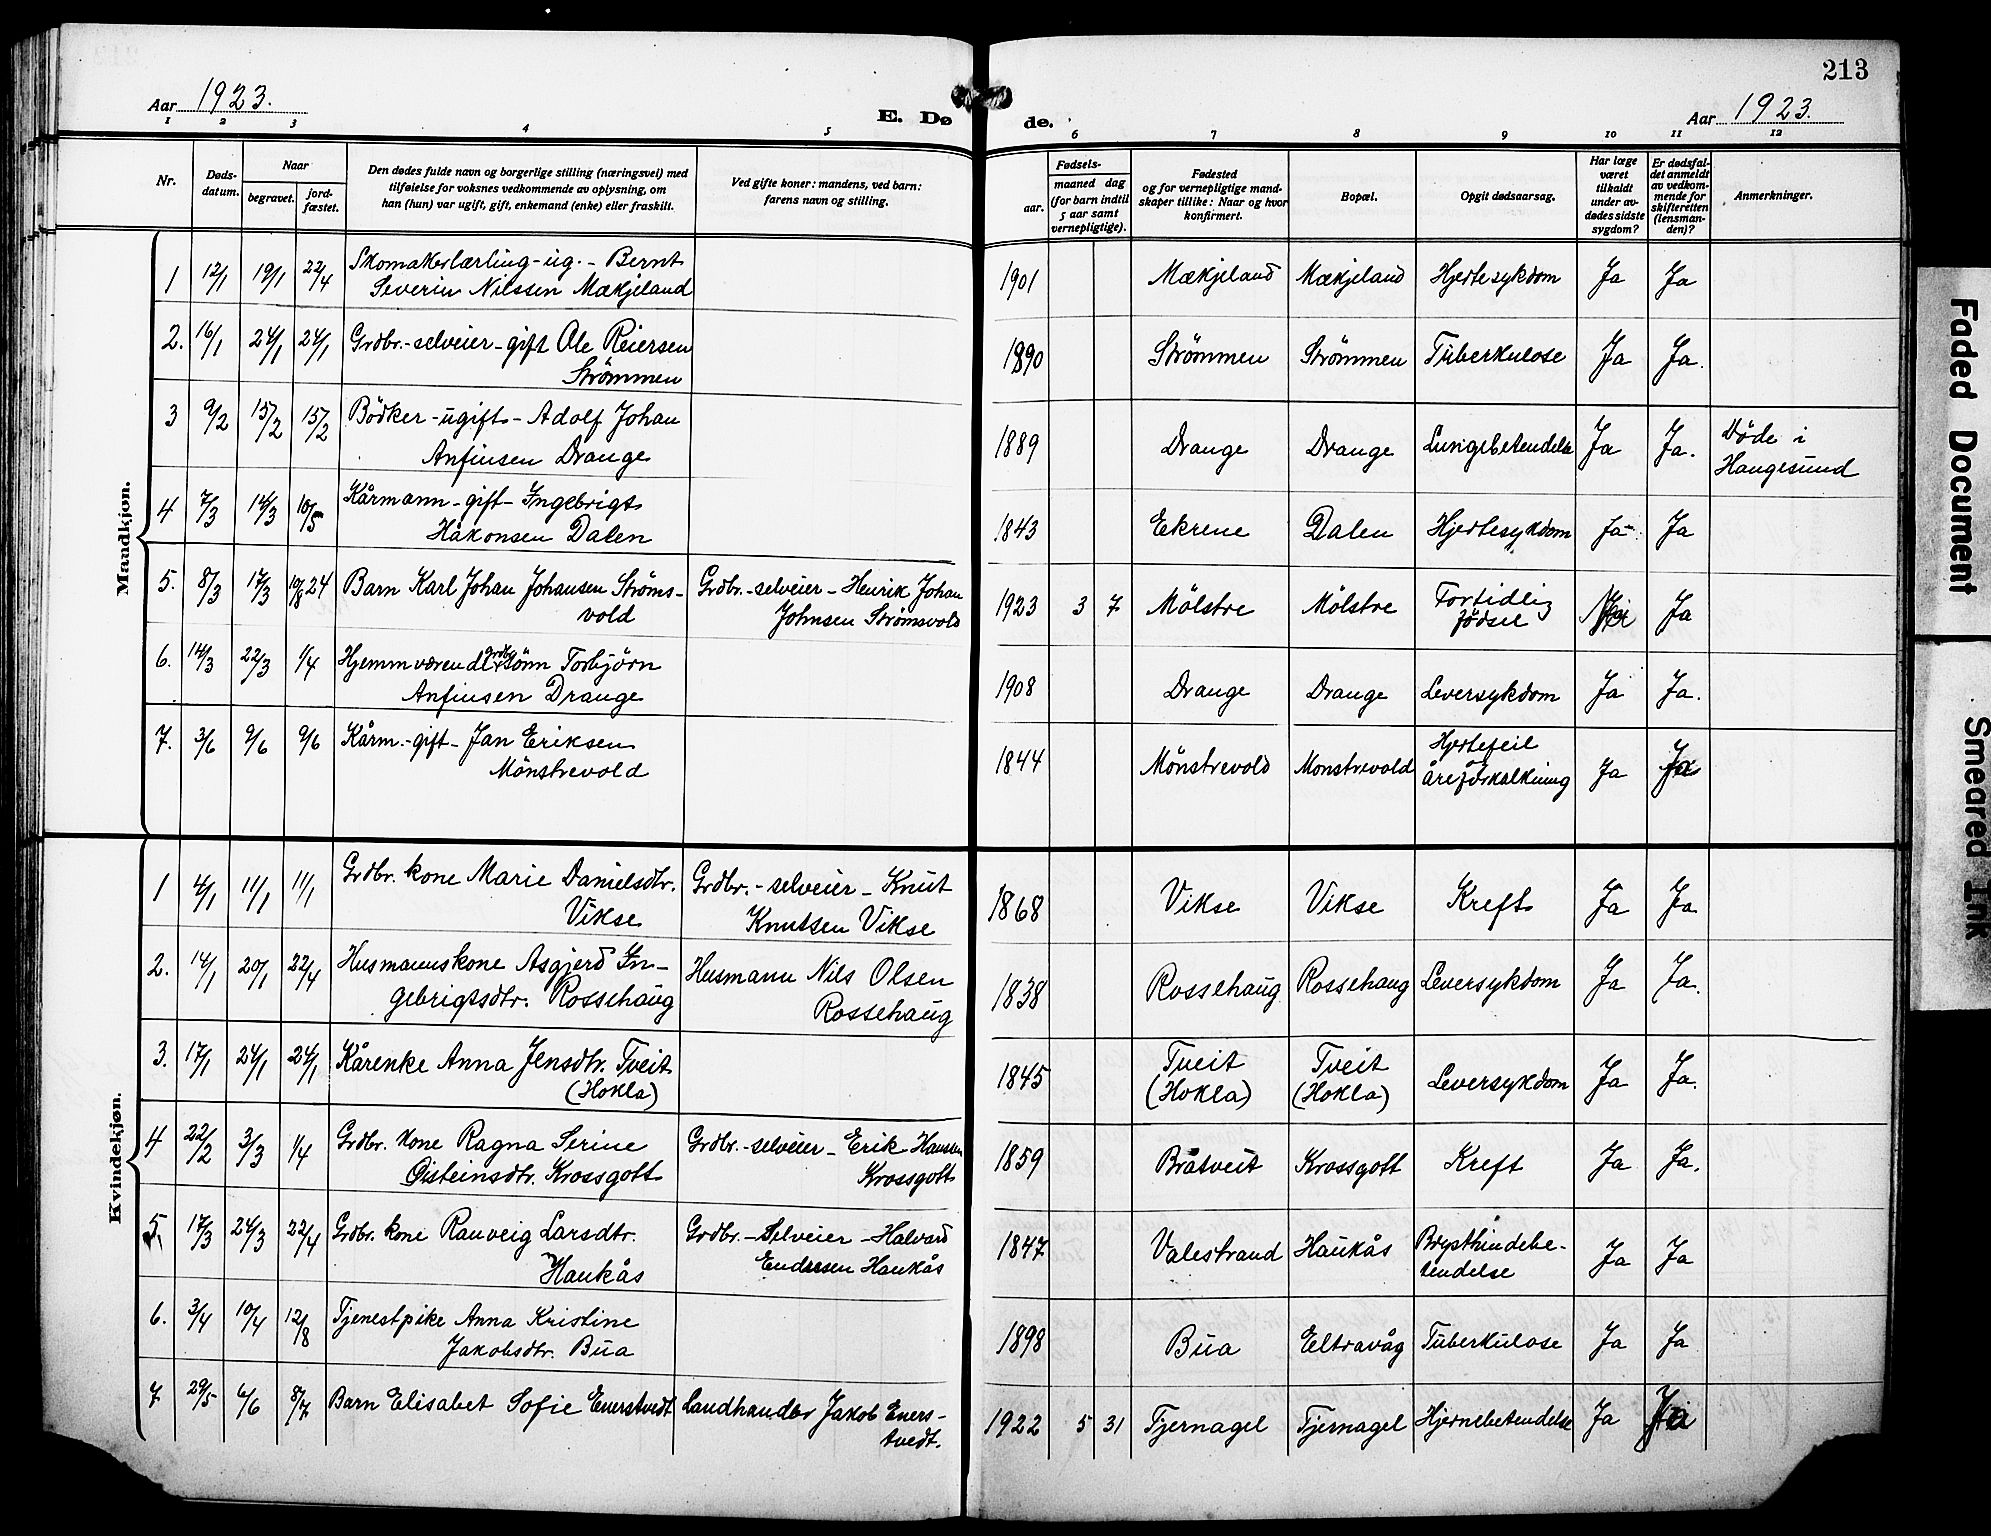 213
Aar 1923.
E. Døde.
Aar 1923.
1 2 3 4 5 6 7 8 9 10 11 12
Nr.
Døds-
datum.
Naar
begravet.
jord-
fæstet.
Den dødes fulde navn og borgerlige stilling (næringsvei) med
tilføielse for voksnes vedkommende av oplysning, om
han (hun) var ugift, gift, enkemand (enke) eller fraskilt.
Ved gifte koner: mandens, ved barn:
farens navn og stilling.
Fødsels-
aar.
maaned dag
(for barn indtil
5 aar samt
vernepligtige).
Fødested
og for vernepligtige mand-
skaper tillike: Naar og hvor
konfirmert.
Bopæl.
Opgit dødsaarsag.
Har læge
været
tilkaldt
under av-
dødes sidste
sygdom?
Er dødsfal-
det anmeldt
av vedkom-
mende for
skifteretten
(lensman-
den)?
Anmerkninger.
Mandkjøn.
1 12/1 19/1 22/4 Skomakerlærling - ug. - Bernt
Severin Nilssen Mækjeland
1901 Mækjeland Mækjeland Hjertesykdom Ja Ja
2. 16/1 24/1 24/1 Grdbr. - selveier - gift Ole Reiersen
Strømmen
1890 Strømmen Strømmen Tuberkulose Ja Ja.
3 9/2 15/2 15/2 Bödker - ugift - Adolf Johan
Anfinsen Drange
1889 Drange Drange Lungebetendelse Ja Ja. Döde i
Haugesund
4 7/3 14/3 10/5 Kårmann - gift - Ingebrigt
Håkonsen Dalen
1843 Ekrene Dalen Hjertesykdom Ja Ja
5. 8/3 17/3 10/8 24 Barn Karl Johan Johansen Ströms-
vold
Grdbr. - selveier - Henrik Johan
Johnsen Strømsvold
1923 3 7 Mölstre Mölstre Fortidlig
födsel Nei Ja
6. 14/3 22/3 1/4 Hjemmværende grdbr. sönn Torbjörn
Anfinsen Drange
1908 Drange Drange Leversykdom Ja Ja.
7. 3/6 9/6 9/6 Kårm. - gift - Jan Eriksen
Mönstrevold
1844 Mönstrevold Monstrevold Hjertefeil
åreforkalkning Ja Ja
Kvindekjøn.
1 4/1 11/1 11/1 Grdbr. kone Marie Danielsdtr.
Vikse
Grdbr. - selveier - Knut
Knutsen Vikse
1868 Vikse Vikse Kreft Ja Ja
2. 14/1 20/1 22/4 Husmannskone Asgjerd In-
gebrigtsdtr. Rossehaug
Husmann Nils Olsen
Rossehaug
1838 Rossehaug Rossehaug Leversykdom Ja Ja.
3. 17/1 24/1 24/1 Kårenke Anna Jensdtr. Tveit
(Hokla)
1845 Tveit
(Hokla) Tveit
(Hokla) Leversykdom Ja Ja.
4 22/2 3/3 1/4 Grdbr. kone Ragna Serine
Øisteinsdtr. Krossgott
Grdbr. - selveier - Erik Hansen
Krossgott
1859 Bråtveit Krossgott Kreft Ja Ja.
5. 17/3 24/3 22/4 Grdbr. kone Rauveig Larsdtr.
Haukås
Grdbr. - Selveier - Halvard
Endresen Haukås
1847 Valestrand Haukås Brysthindebe-
tendelse Ja Ja
6. 3/4 10/4 12/8 Tjenestpike Anna Kristine
Jakobsdtr. Bua
1898 Bua Eltravåg Tuberkulose Ja Ja
7 29/5 6/6 8/7 Barn Elisabet Sofie Enerstvedt
Landhandler Jakob Eners-
tvedt.
1922 5 31 Tjernagel Tjernagel Hjernebetendelse Ja
Faded Document
Smeared Ink